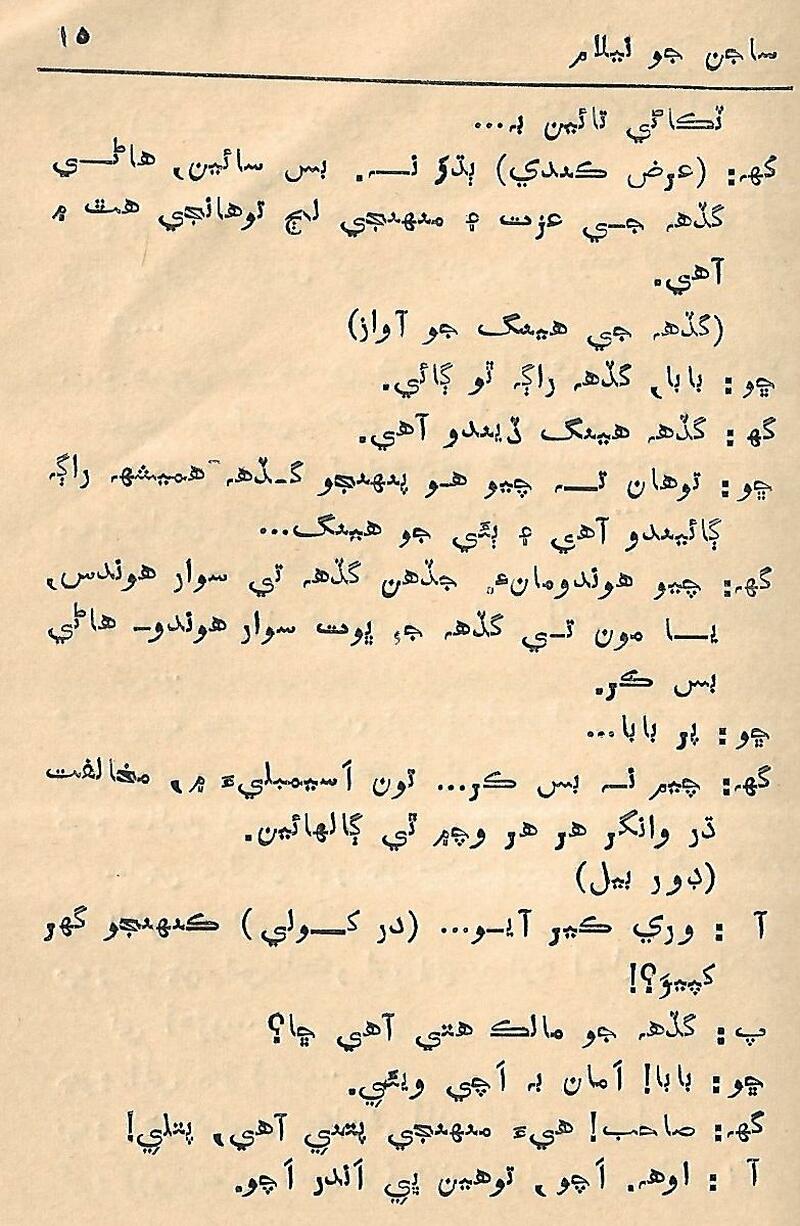 ساڄن جو نيلام ١٥
ٽڪاڻي تائين به...
گهه: (عرض ڪندي) ٻڌؤ نه. بس سائين، هاڻي
گڏهه جي عزت ۽ منهنجي لڄ توهانجي هٿ ۾
آهي.
(گڏهه جي هينگ جو آواز)
ڇو: بابا، گڏهه راڳ ٿو ڳائي.
گهه: گڏهه هينگ ڏيندو آهي.
ڇو: توهان ته چيو هو پنهنجو گڏهه هميشه راڳ
ڳائيندو آهي ۽ ٻئي جو هينگ...
گهه: چيو هوندومانءِ جڏهن گڏهه تي سوار هوندس،
يا مون تي گڏهه جو ڀوت سوار هوندو- هاڻي
بس ڪر.
ڇو: پر بابا...
گهه: چيم نه بس ڪر... تون اَسيمبليءَ ۾، مخالفت
ڌر وانگر هر هر وچ۾ ٿي ڳالهائين.
(ڊور بيل)
آ : وري ڪير آيو... (در کولي) ڪنهنجو گهر
کپيوَ؟!
پ: گڏهه جو مالڪ هتي آهي ڇا؟
ڇو: بابا! اَمان به اَچي ويئي.
گهه: صاحب! هيءَ منهنجي پتني آهي، پتلي!
آ : اوهه. اَچو، توهين ڀي اَندر اَچو.